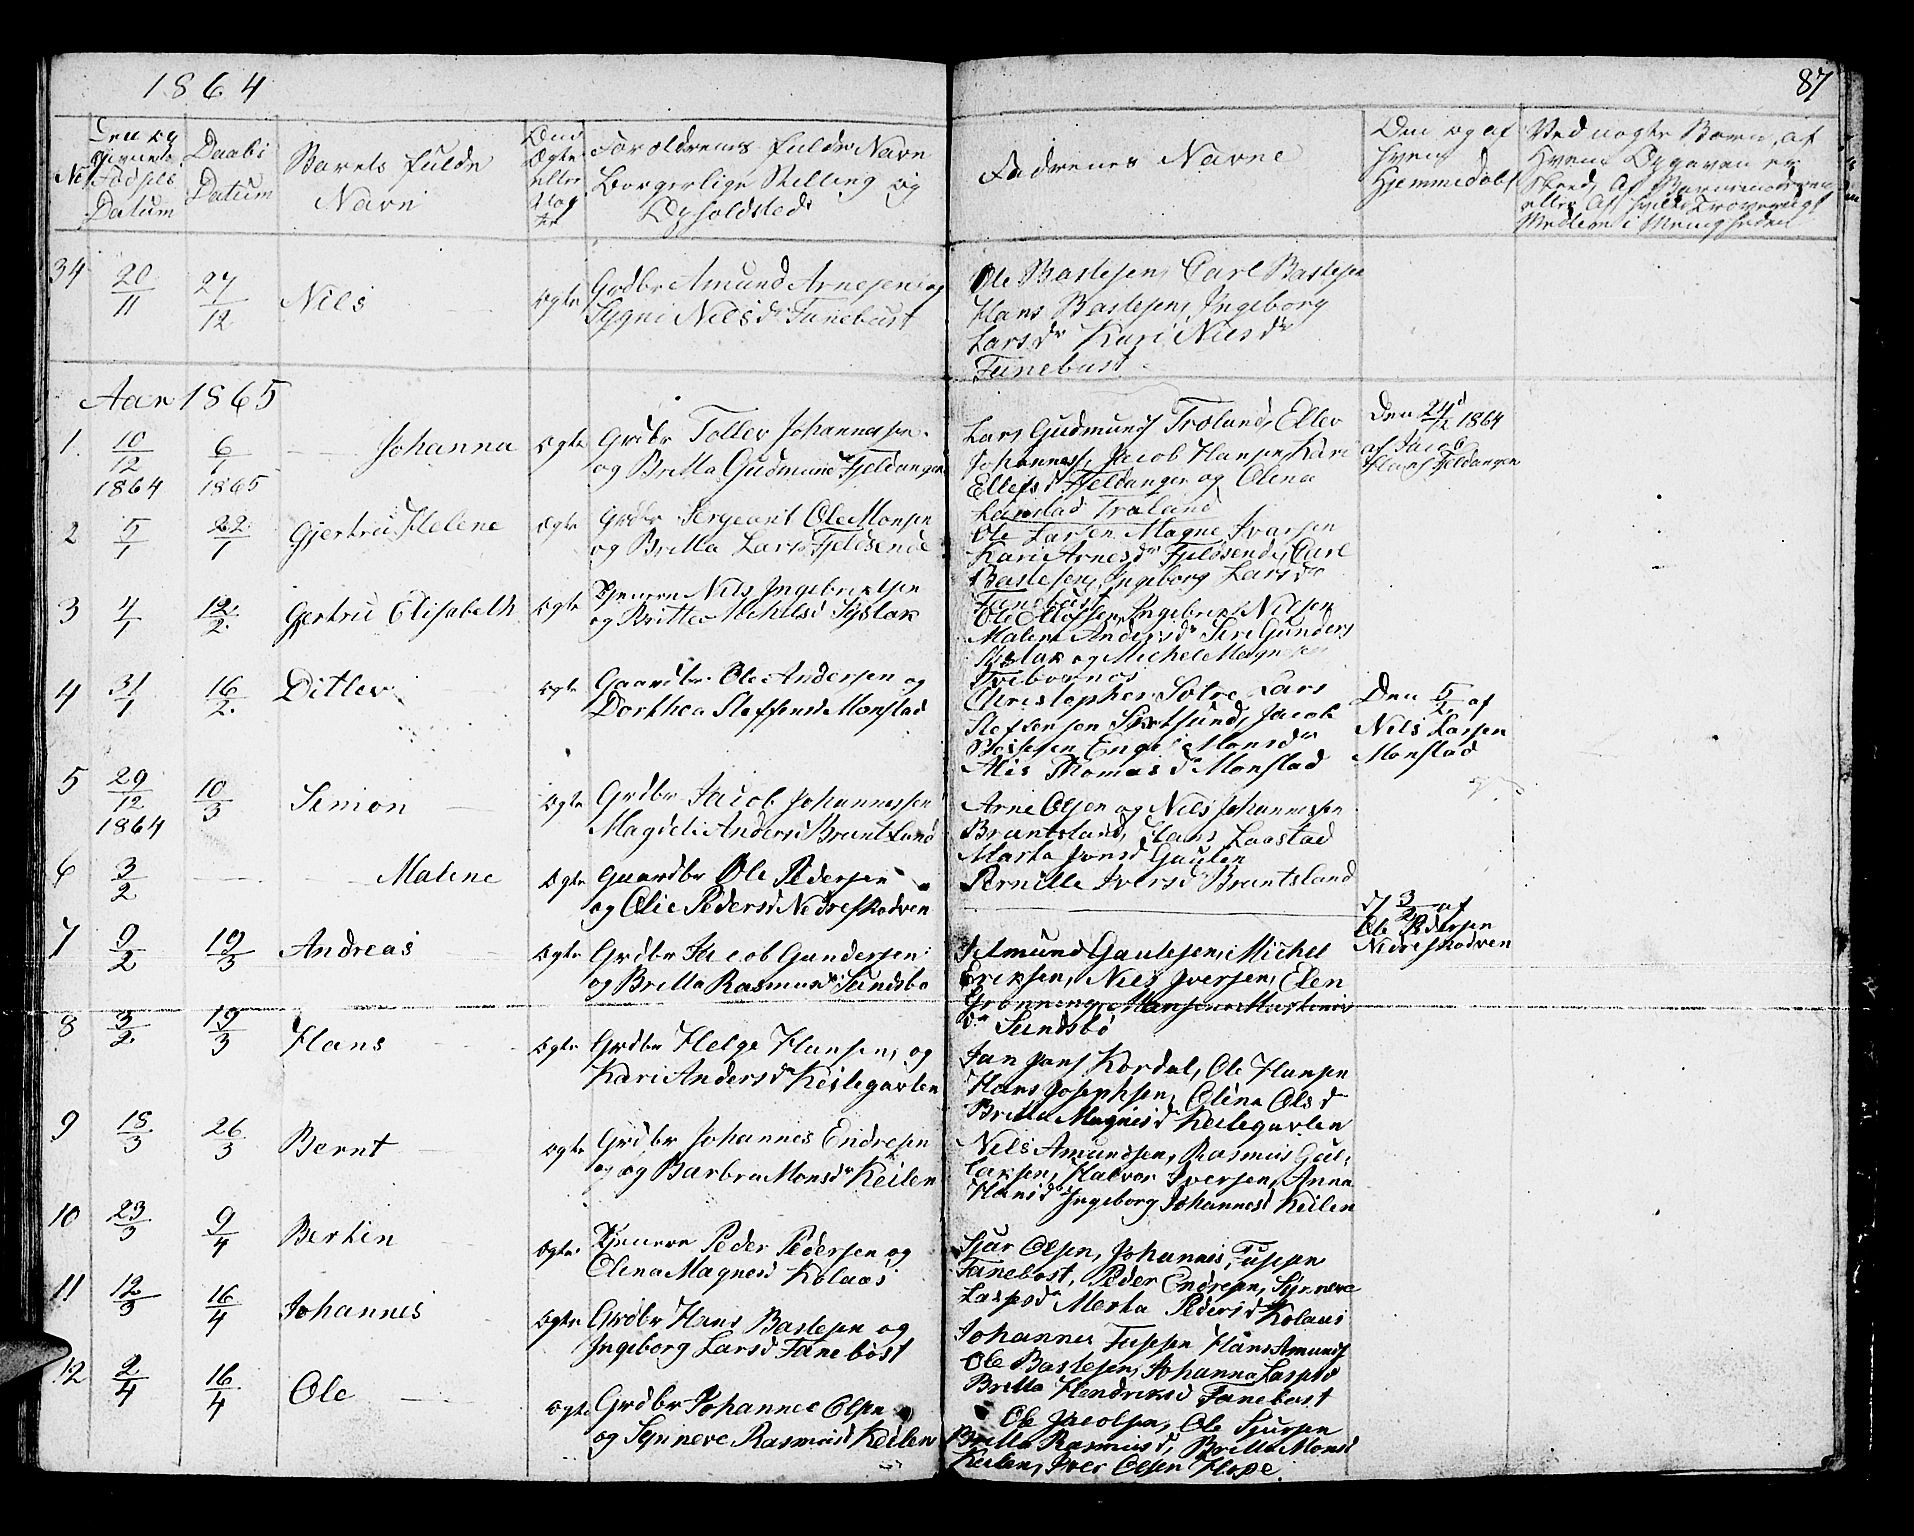 1864
87
No
Daabs
Datum
Barnets fulde
Navn
Ægte
eller
Forældrenes fulde Navn
Borgerlige Stilling og
Opholdsted
Fadrenes Navne
Den og af
hvem
hjemmedøbt
Ved uægte Børn, af
34 20/11 27/12 Nils Ægte Grdbr Amund Arnesen og
Sygni Nilsdr Fanebust
Ole Bastesen, Carl Bastesen
Hans Bastesen, Ingeborg
Larsdr Kari Nilsdr
Fanebust
Aar 1865
1. 10/12 1864 6/1 1865 Johanna Ægte Grdbr Tollev Johannessen
og Britta Gudmundsdr Fjeldanger
Lars Gudmunds Træland, Ellev
Johanness, Jacob Hansen, Kari
Ellefsd Fjeldanger og Olena
Træland
Den 24/12 1864
af Jacob
Hans Fjeldanger
2 5/1 22/1 Gjertru Helene Ægte Grdbr Sergeant Ole Monsen
og Britta Larsd Fjeldsende
Ole Larsen Magne Ivarsen
Kari Arnesdr Fjeldsende, Carl
Bastesen, Ingeborg Larsdr
Fanebust
3 4/1 12/2 Gjertru Elisabeth Ægte Nils Ingebrigtsen
og Britte
Ole Ellefsen, Ingebrigt Nilsen
Malene Andersdr Siri Gunders
og Michel Magnesen
4 31/1 16/2 Ditlev Ægte Gaardbr Ole Andersen og
Dorthea Steffensd Monstad
Christopher Lars
Steffensen Jacob
Enge Monsdr
Alis Thomasd Monstad
Den 5/2 af
Nils Larsen
Monstad
5 29/12 1864 10/3 Simon Ægte Grdbr Jacob Johannessen
Magdeli Andersd Bruntland
Arne Olsen og Nils Johannesen
Bruntsland, Hans Laastad
Marta Jonsd Gaulen
Pernille Iversd Bruntsland
6 3/2 Malene Ægte Gaardbr Ole Pedersen
og Olie Pedersd Nedreskodven
3/2 af
Ole Pedersen
Nedreskodven
7 9/2 19/3 Andreas Ægte Grdbr Jacob Gundersen
og Britta Rasmusdr Sundsbø
Amund Gautesen, Michel
Eriksen, Nils Iversen, Elen
Sundsbø
8 3/2 19/3 Hans Ægte Grdbr Helge Hansen, og
Kari Andersd Keilegavlen
Jan Jans Kordal, Ole Hansen
Hans Josephsen, Olina Olsd
Britta Magnesd Keilegavlen
9 15/3 26/3 Bernt Ægte Grdbr Johannes Endresen
og og Barbra Monsdr Keilen
Nils Amundsen, Rasmus Gul-
laksen, Halvor Iversen, Anna
Hansdr Ingeborg Johannesd Keilen
10 23/3 9/4 Bertin Ægte Peder Pedersen og
Olena Magnesd Kolaas
Sjur Olsen, Johannes
Fanebost, Peder Endresen, Synneve
Merta Pedersd Kolaas
11 12/3 16/4 Johannes Ægte Grdbr Hans Bastesen og
Ingeborg Larsd Fanebøst
Johannes Hans Amunds
Ole Bastesen, Johanna
Britta Hendriksd Fanebust
12 2/4 16/4 Ole Ægte Grdbr Johannes Olsen
og Synneve Rasmusd Keilen
Ole Jacobsen, Ole Sjursen
Britta Rasmusd, Britta Monsd
Keilen, Iver Olsen Hope.